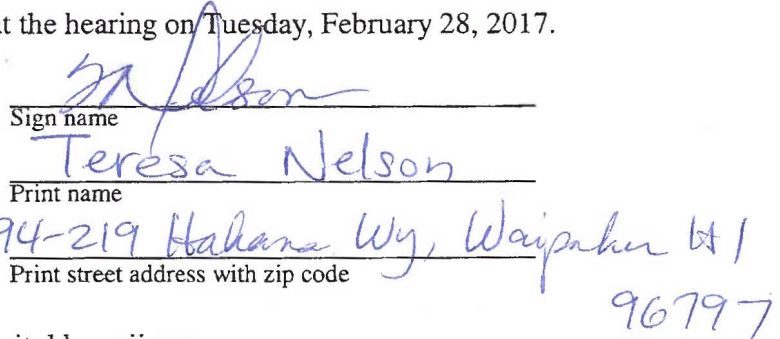 at the hearing on Tuesday, February 28, 2017.
Sign name
Teresa Nelson
Print name
94-219 Hahana Wy, Waipahu HI
Print street address with zip code
96797